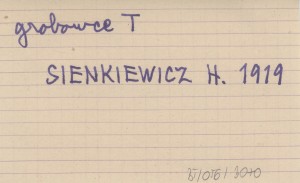 grobowce T
SIENKIEWICZ H. 1919